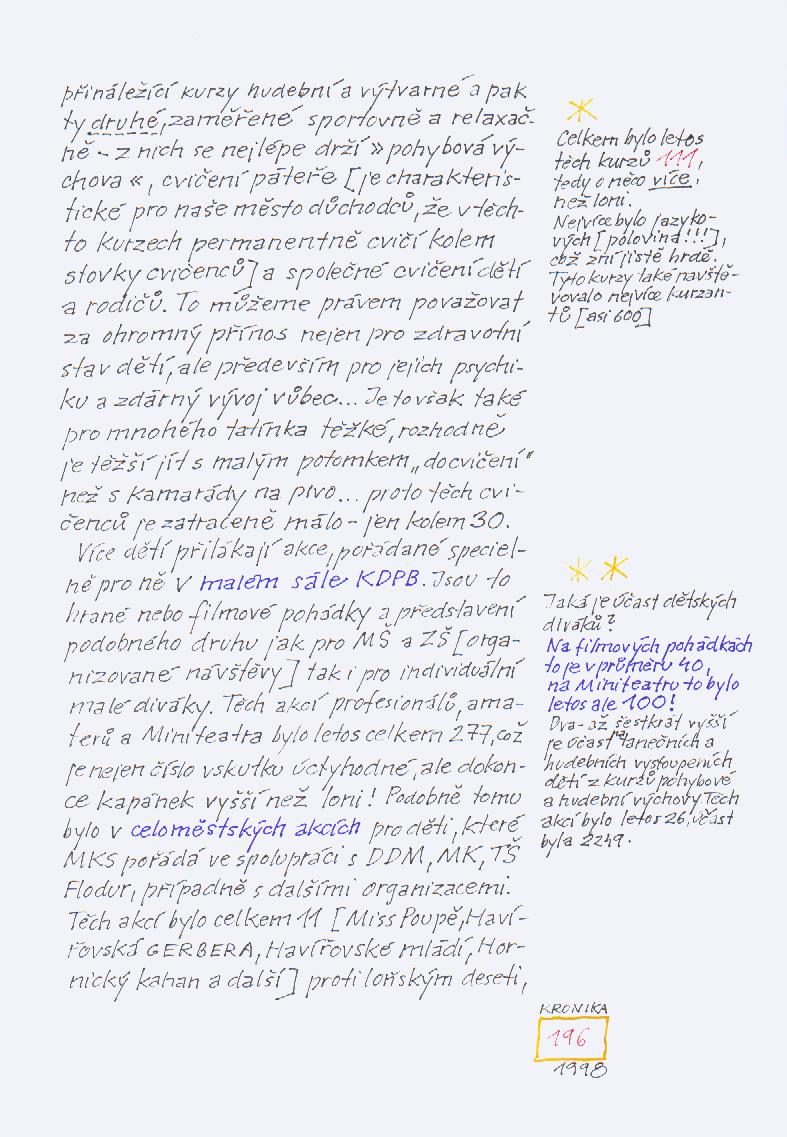 přináležící kurzy hudební a výtvarné a pak
ty druhé, zaměřené sportovně a relaxač-
ně - z nich se nejlépe drží » pohybová vý-
chova «, cvičení páteře [je charakteris-
tické pro naše město důchodců, že v těch-
to kurzech permanentně cvičí kolem
stovky cvičenců] a společné cvičení dětí
a rodičů. To můžeme právem považovat
za ohromný přínos nejen pro zdravotní
stav dětí, ale především pro jejich psychi-
ku a zdárný vývoj vůbec... Je to však také
pro mnohého tatínka těžké, rozhodně
je těžší jít s malým potomkem „do cvičení"
než s kamarády na pivo... proto těch cvi-
čenců je zatraceně málo - jen kolem 30.
Více dětí přilákají akce, pořádané speciel-
ně pro ně v malém sále KDPB. Jsou to
hrané nebo filmové pohádky a představení
podobného druhu jak pro MŠ a ZŠ [orga-
nizované návštěvy] tak i pro individuální
malé diváky. Těch akcí profesionálů, ama-
terů a Miniteatra bylo letos celkem 277, což
je nejen číslo vskutku úctyhodné, ale dokon-
ce kapánek vyšší než loni! Podobně tomu
bylo v celoměstských akcích pro děti, které
MKS pořádá ve spolupráci s DDM, MK, TŠ
Flodur, případně s dalšími organizacemi.
Těch akcí bylo celkem 11 [Miss Poupě, Haví-
řovská GERBERA, Havířovské mládí, Hor-
nický kahan a další] proti loňským deseti,
*
Celkem bylo letos
těch kurzů 111,
tedy o něco více,
než loni.
Nejvíce bylo jazyko-
vých [polovina!!!],
což zní jistě hrdě.
Tyto kurzy také navště-
vovalo nejvíce kurzan-
tů [asi 600]
* *
Jaká je účast dětských
diváků?
Na filmových pohádkách
to je v průměru 40,
na Miniteatru to bylo
letos ale 100!
Dva- až šestkrát vyšší
je účast na tanečních a
hudebních vystoupeních
dětí z kurzů pohybové
a hudební výchovy. Těch
akcí bylo letos 26, účast
byla 2249.
KRONIKA
196
1998